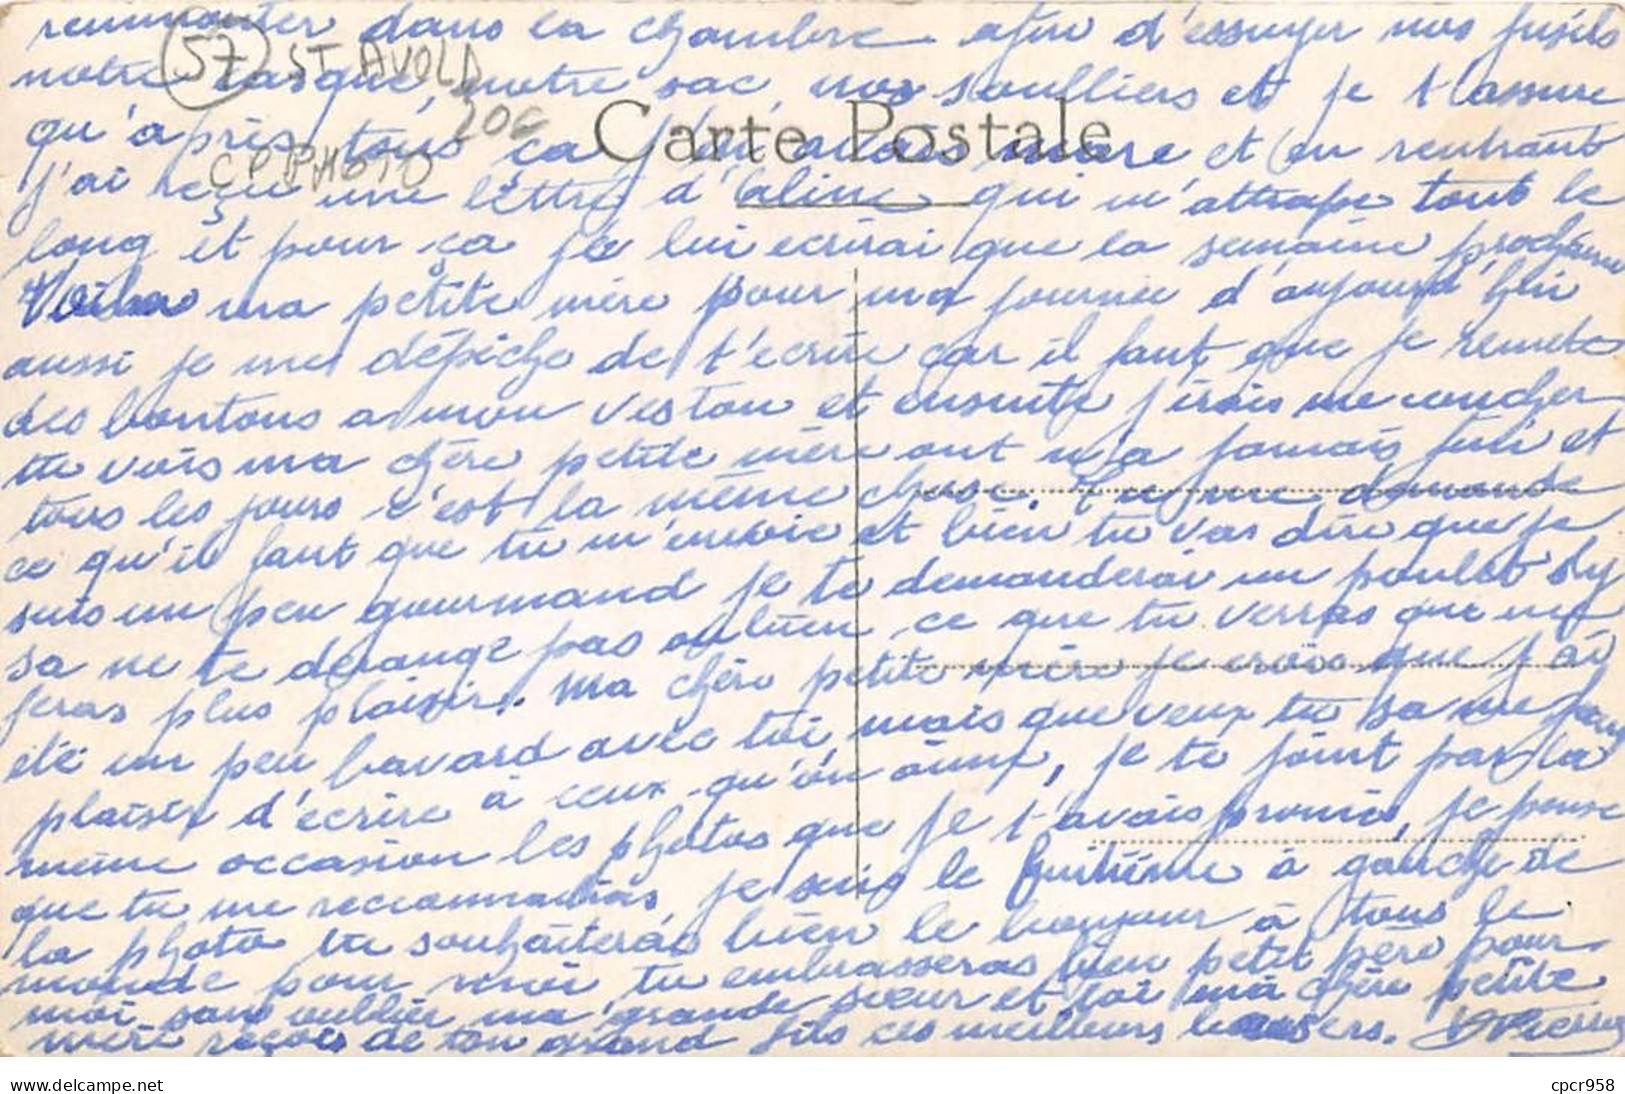 remmonter dans la chambre afin d'essuyer nos fusils
57 ST AVOLD
notre casque, notre sac, nos soulliers et je t'assure
20€
Carte Postale
qu'après tous ça j'en avais mare et en rentrant
CP PHOTO
j'ai reçu une lettre d'Aline qui m'attrape tout le
long et pour ça je lui ecrirai que la semaine prochaine
Voila ma petite mère pour ma journée d'aujourd'hui
aussi je me dépêche de t'ecrire car il faut que je remete
des boutons a mon veston et ensuite j'irais me coucher
tu vois ma chère petite mère ont n'a jamais fini et
tous les jours c'est la même chose. Tu me demande
ce qu'il faut que tu m'envoie et bien tu vas dire que je
suis un peu gourmand je te demanderai un poulet si
sa ne te dérange pas ou bien ce que tu verras que me
feras plus plaisir. Ma chère petite mère je crois que j'ai
été un peu bavard avec toi, mais que veux tu sa me fait
plaisir d'ecrire à ceux qu'on aime, je te joint par la
même occasion les photos que je t'avais promis, je pense
que tu me reconnaitras je suis le huitième à gauche de
la photo tu souhaiteras bien le bonjour à tous le
monde pour moi tu embrasseras bien petit père pour
moi sans oublier ma grande sœur et toi ma chère petite
mère reçois de ton grand fils ces meilleurs baisers.
delcampe.net
cpcr958